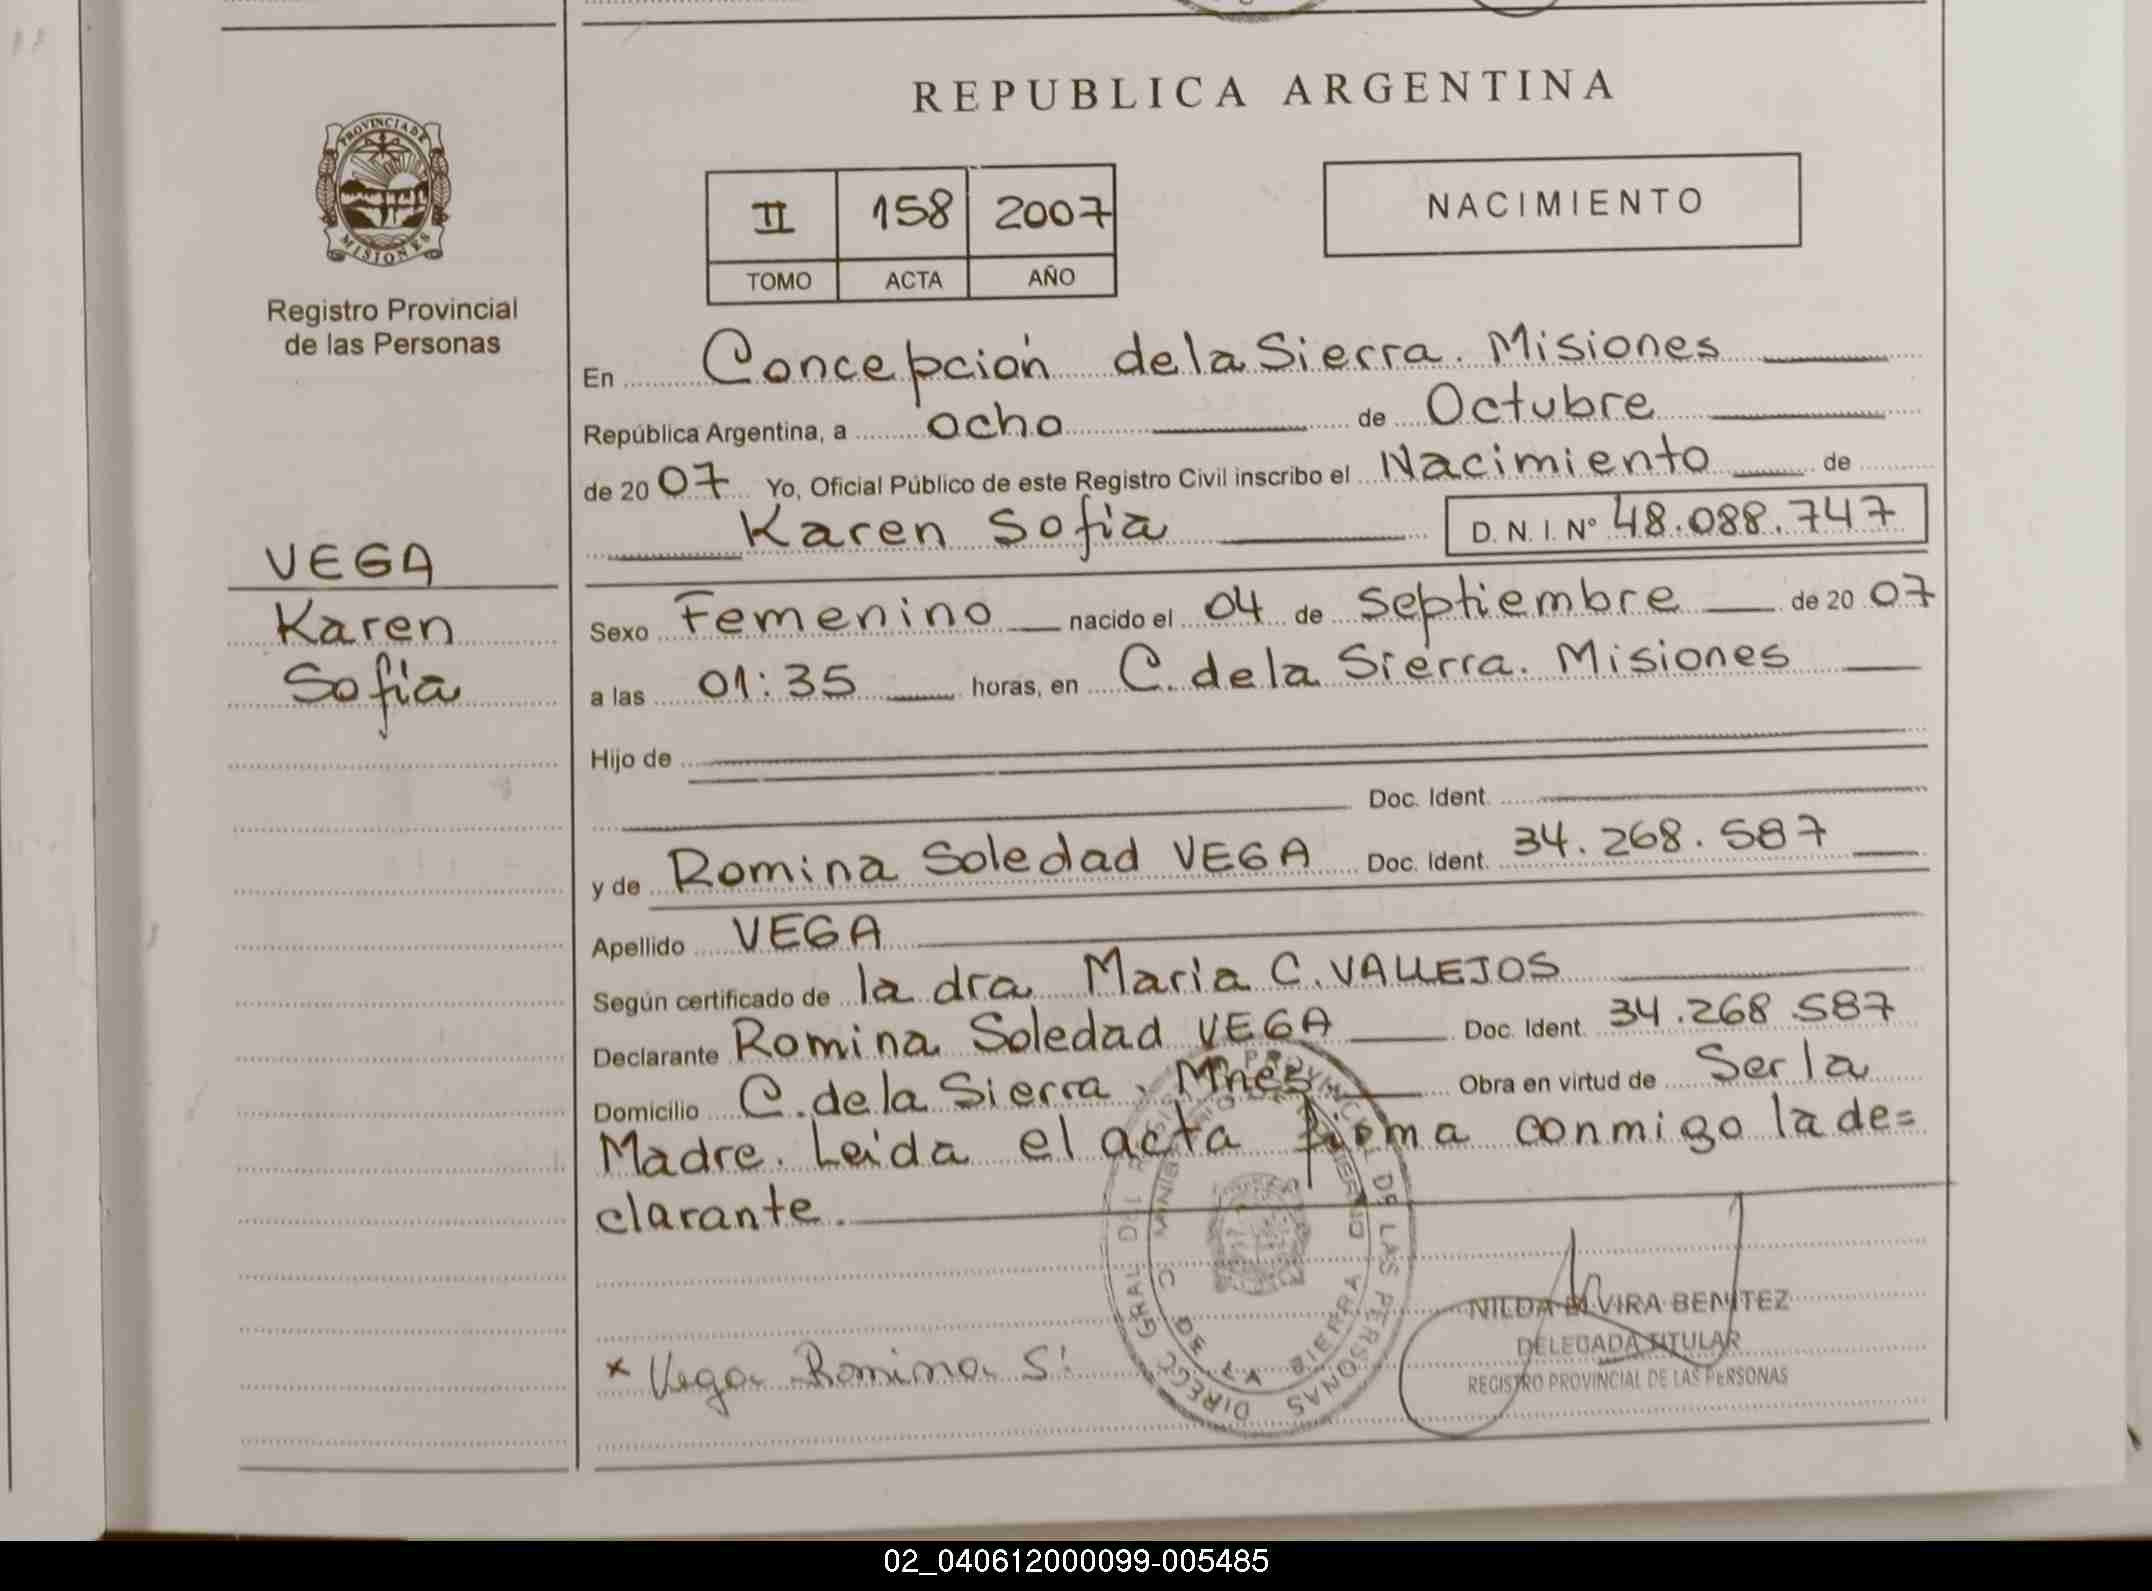 REPUBLICA ARGENTINA
PROVINCIA DE
MISIONES
Registro Provincial
de las Personas
II 158 2007
TOMO ACTA AÑO
NACIMIENTO
En Concepción de la Sierra. Misiones
República Argentina, a ocho de Octubre
de 2007 Yo, Oficial Público de este Registro Civil inscribo el Nacimiento de
Karen Sofía D. N. I. Nº 48.088.747
VEGA
Karen
Sofía
Sexo Femenino nacido el 04 de Septiembre de 2007
a las 01:35 horas, en C. de la Sierra. Misiones
Hijo de
Doc. Ident.
y de Romina Soledad VEGA Doc. Ident. 34.268.587
Apellido VEGA
Según certificado de la dra María C. VALLEJOS
Declarante Romina Soledad VEGA Doc. Ident. 34.268.587
Domicilio C. de la Sierra. Mnes Obra en virtud de Ser la
Madre. Leída el acta firma conmigo la de=
clarante.
DIRECC. GRAL DEL PROVINCIAL DE LAS PERSONAS
C. DE LA SIERRA
NILDA ELVIRA BENITEZ
DELEGADA TITULAR
REGISTRO PROVINCIAL DE LAS PERSONAS
x Vega Romina S.
02_040612000099-005485